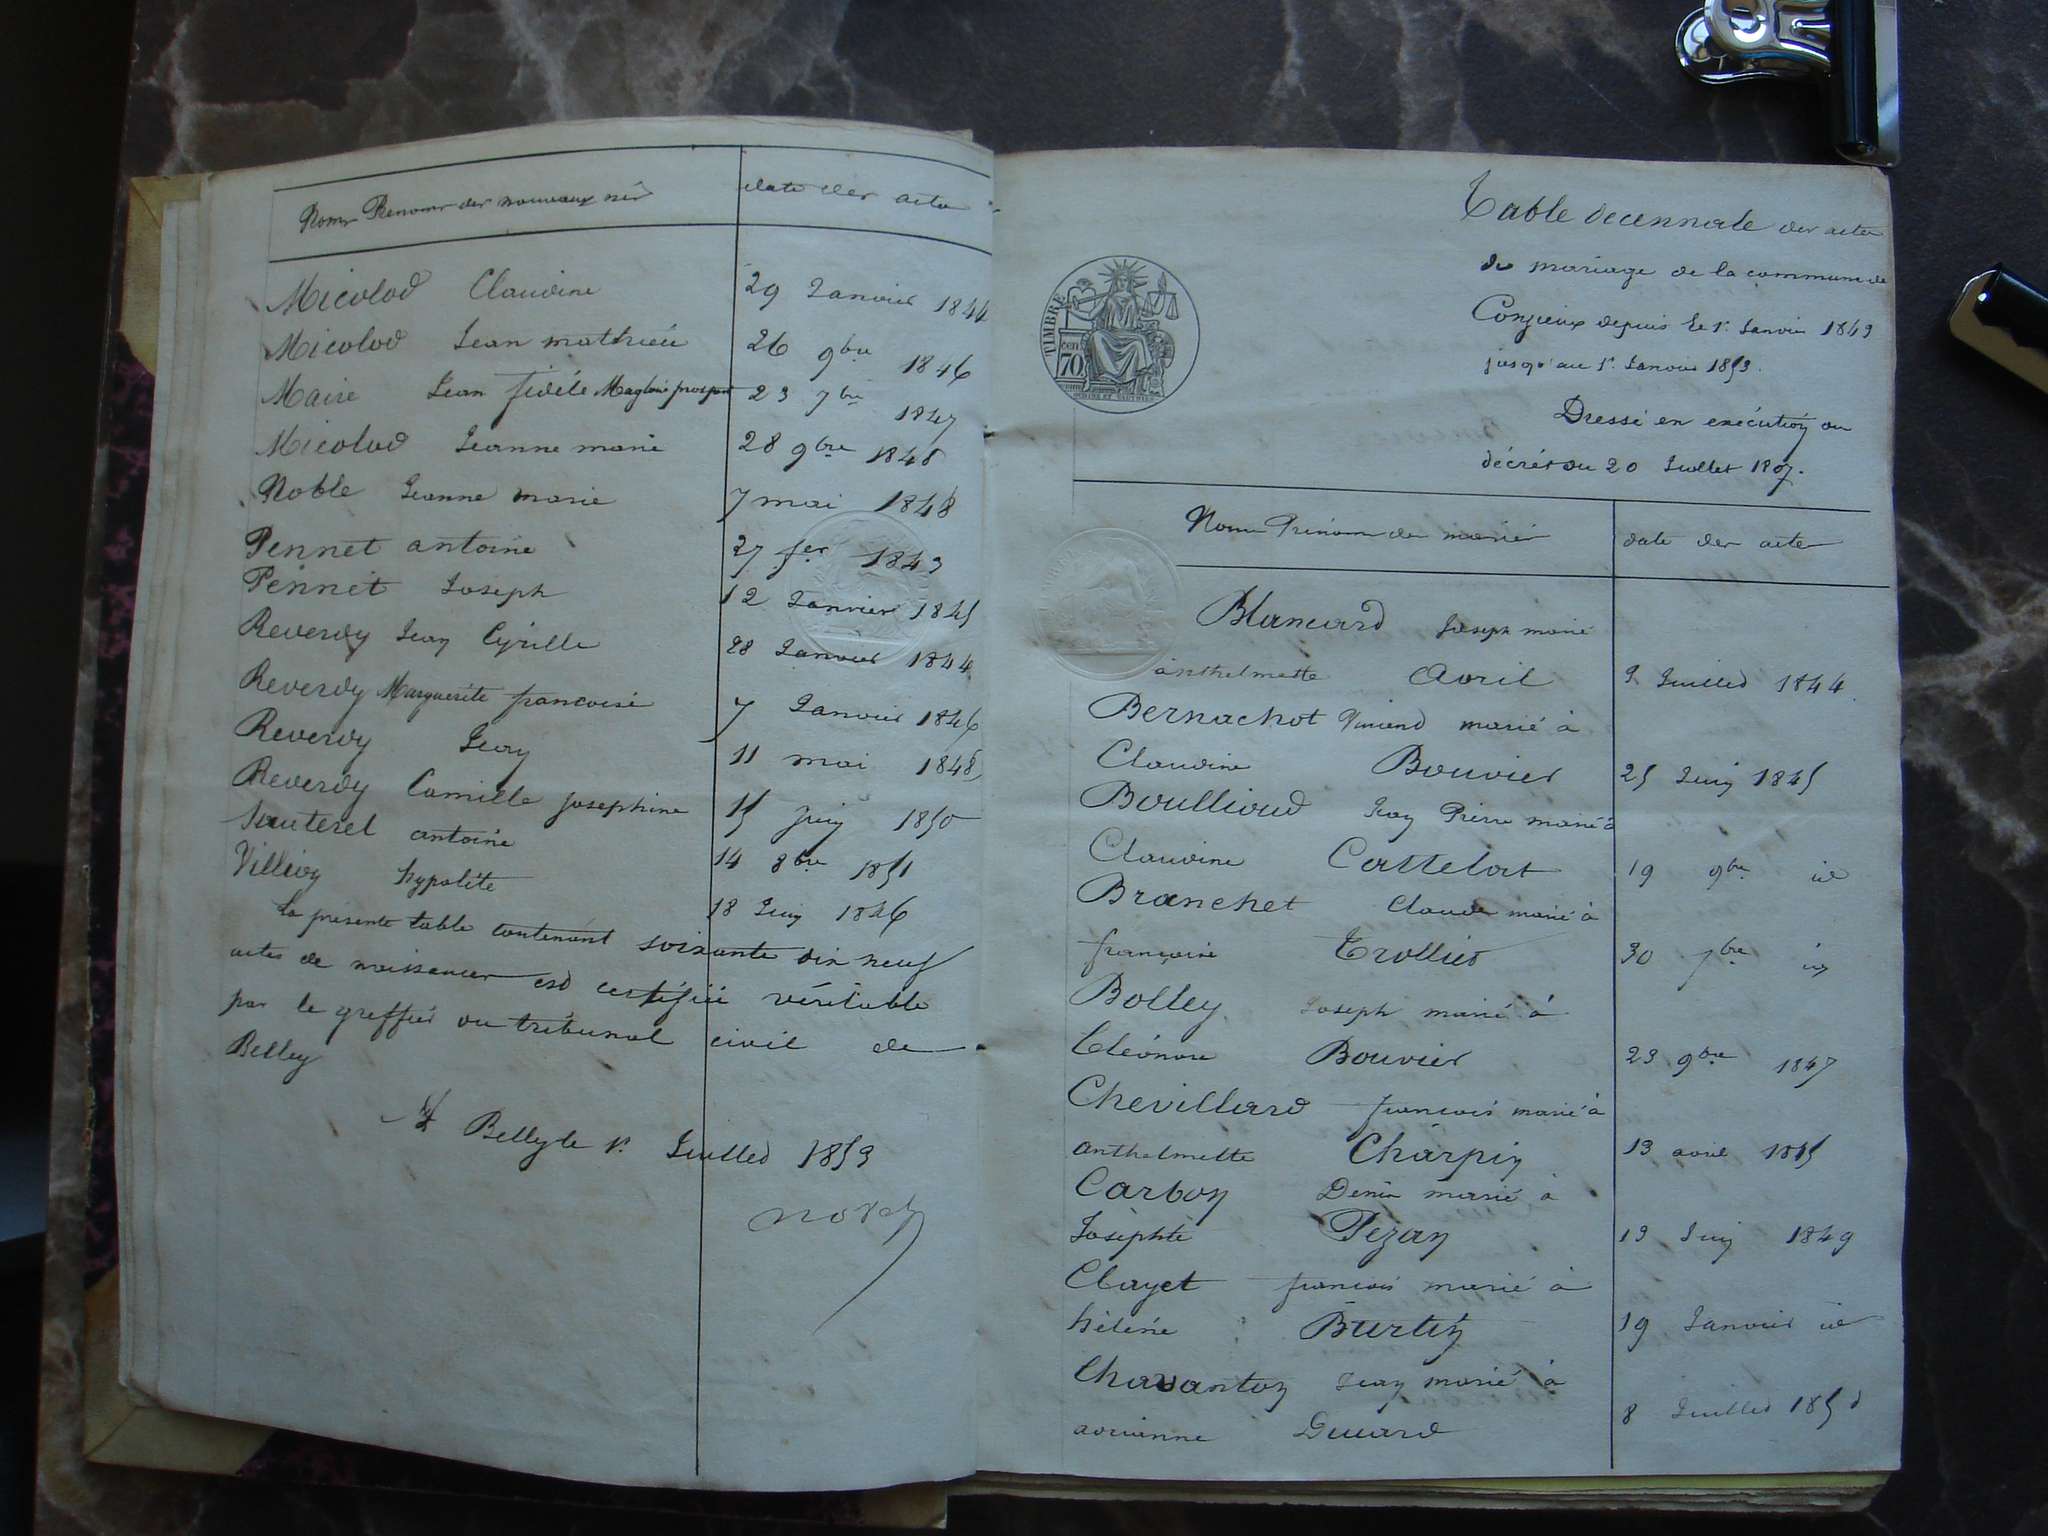 Noms Prenoms des nouveaux nés date des actes
Micolod Claudine 29 Janvier 1844
Micolod Jean mathieu 26 9bre 1846
Maire Jean fidèle Magloire prosper 23 7bre 1847
Micolod Jeanne marie 28 9bre 1848
Noble Jeanne marie 7 mai 1848
Pennet antoine 27 fer 1843
Pennet Joseph 12 Janvier 1845
Reverdy Jean Cyrille 28 Janvier 1844
Reverdy Marguerite francoise 7 Janvier 1846
Reverdy Jean 11 mai 1848
Reverdy Camille Josephine 15 Juin 1850
Sauterel antoine 14 8bre 1851
Villion hypolite 18 Juin 1846
la présente table contenant soixante dix neuf
actes de naissances est certifiée véritable
par le greffier du tribunal civil de
Belley
A Belley le 1r. Juillet 1853
Table decennale des actes
de mariage de la commune de
Conzieux depuis le 1r. Janvier 1843
jusqu'au 1r. Janvier 1853.
TIMBRE
70
Dressé en exécution du
décret du 20 Juillet 1807.
Noms Prénoms des mariés date des actes
Blancard Joseph marié
anthelmette Avril 9 Juillet 1844
Bernachot Vincent marié à
Claudine Bouvier 25 Juin 1845
Boullioud Jean Pierre marié à
Claudine Cattelat 19 9bre id
Branchet Claude marié à
françoise Trollier 30 7bre id
Bolley Joseph marié à
Cléonore Bouvier 23 9bre 1847
Chevillard francois marié à
anthelmette Charpin 13 avril 1845
Carbon Denis marié à
Josephte Pezan 13 Juin 1849
Clayet francois marié à
hélène Burtin 19 Janvier id
Chavanton Jean marié à
adrienne Guiard 8 Juillet 1850